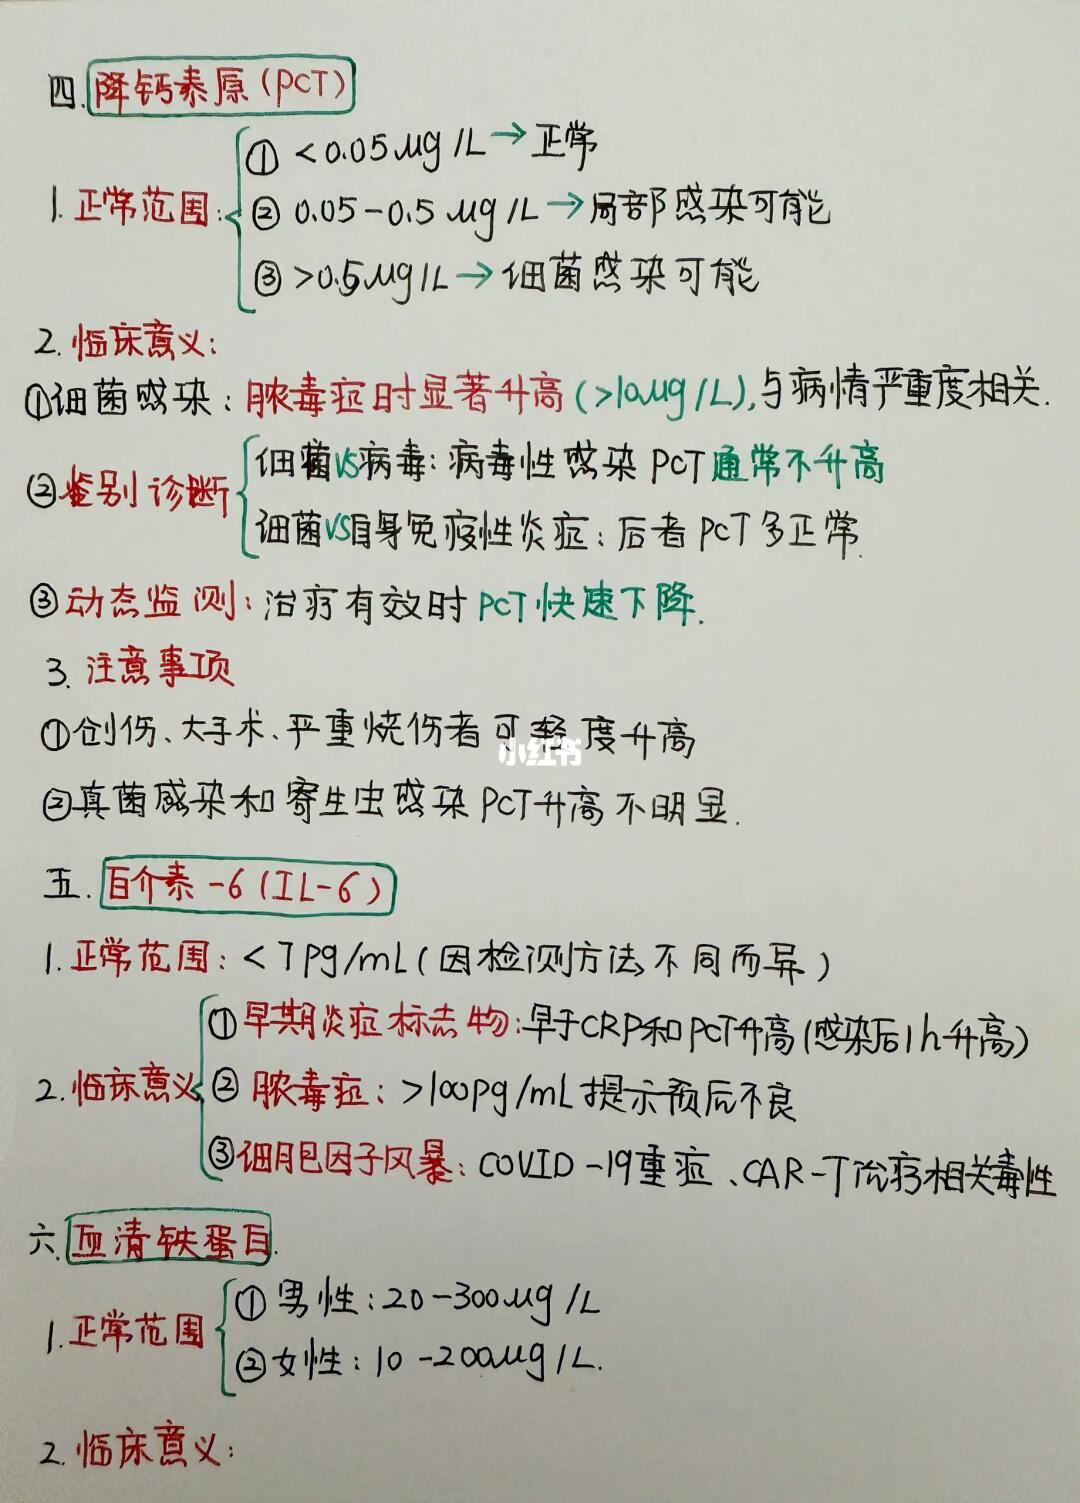 四. 降钙素原(PCT)
1. 正常范围:
① <0.05μg/L→正常
② 0.05-0.5μg/L→局部感染可能
③ >0.5μg/L→细菌感染可能
2. 临床意义:
①细菌感染: 脓毒症时显著升高(>10μg/L),与病情严重度相关.
②鉴别诊断
细菌VS病毒: 病毒性感染PCT通常不升高
细菌VS自身免疫性炎症: 后者PCT多正常.
③动态监测: 治疗有效时PCT快速下降.
3. 注意事项
①创伤、大手术、严重烧伤者可轻度升高
小红书
②真菌感染和寄生虫感染PCT升高不明显.
五. 白介素-6(IL-6)
1. 正常范围: <7pg/mL(因检测方法不同而异)
2. 临床意义
①早期炎症标志物: 早于CRP和PCT升高(感染后1h升高)
②脓毒症: >100pg/mL提示预后不良
③细胞因子风暴: COVID-19重症、CAR-T治疗相关毒性
六. 血清铁蛋白.
1. 正常范围
①男性: 20-300μg/L
②女性: 10-200μg/L.
2. 临床意义: